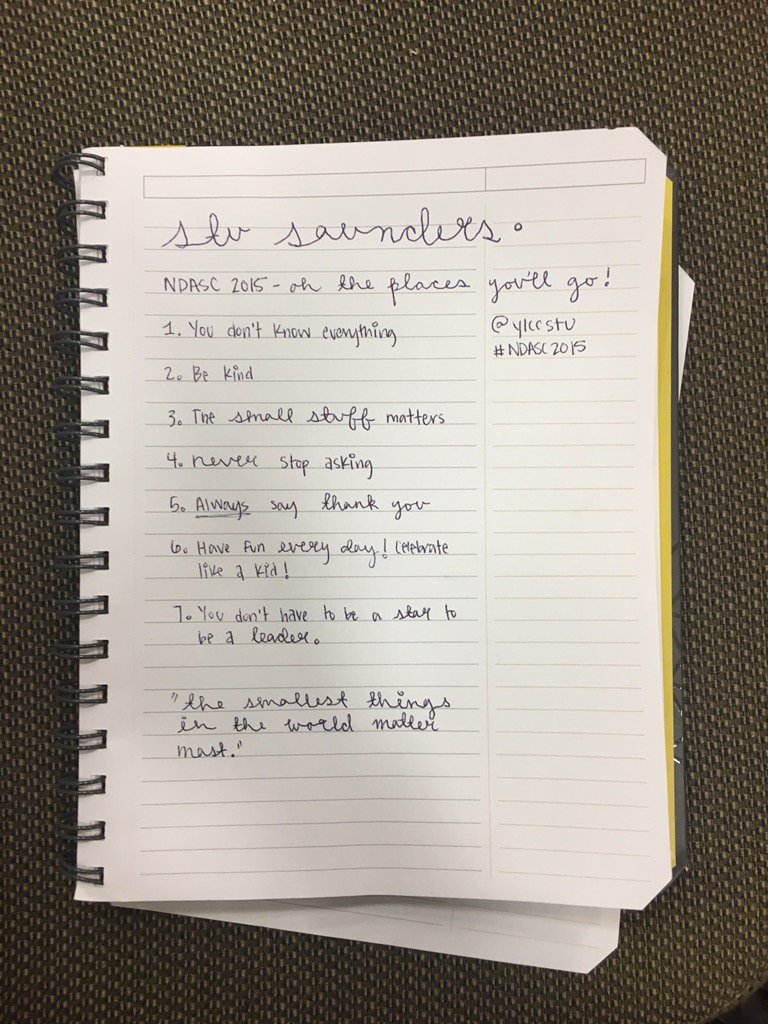 stu saunders.
NDASC 2015 - oh the places you'll go!
1. You don't know everything
@ylccstu
#NDASC2015
2. Be kind
3. The small stuff matters
4. never stop asking
5. Always say thank you
6. Have fun every day! Celebrate
like a kid!
7. You don't have to be a star to
be a leader.
"the smallest things
in the world matter
most."